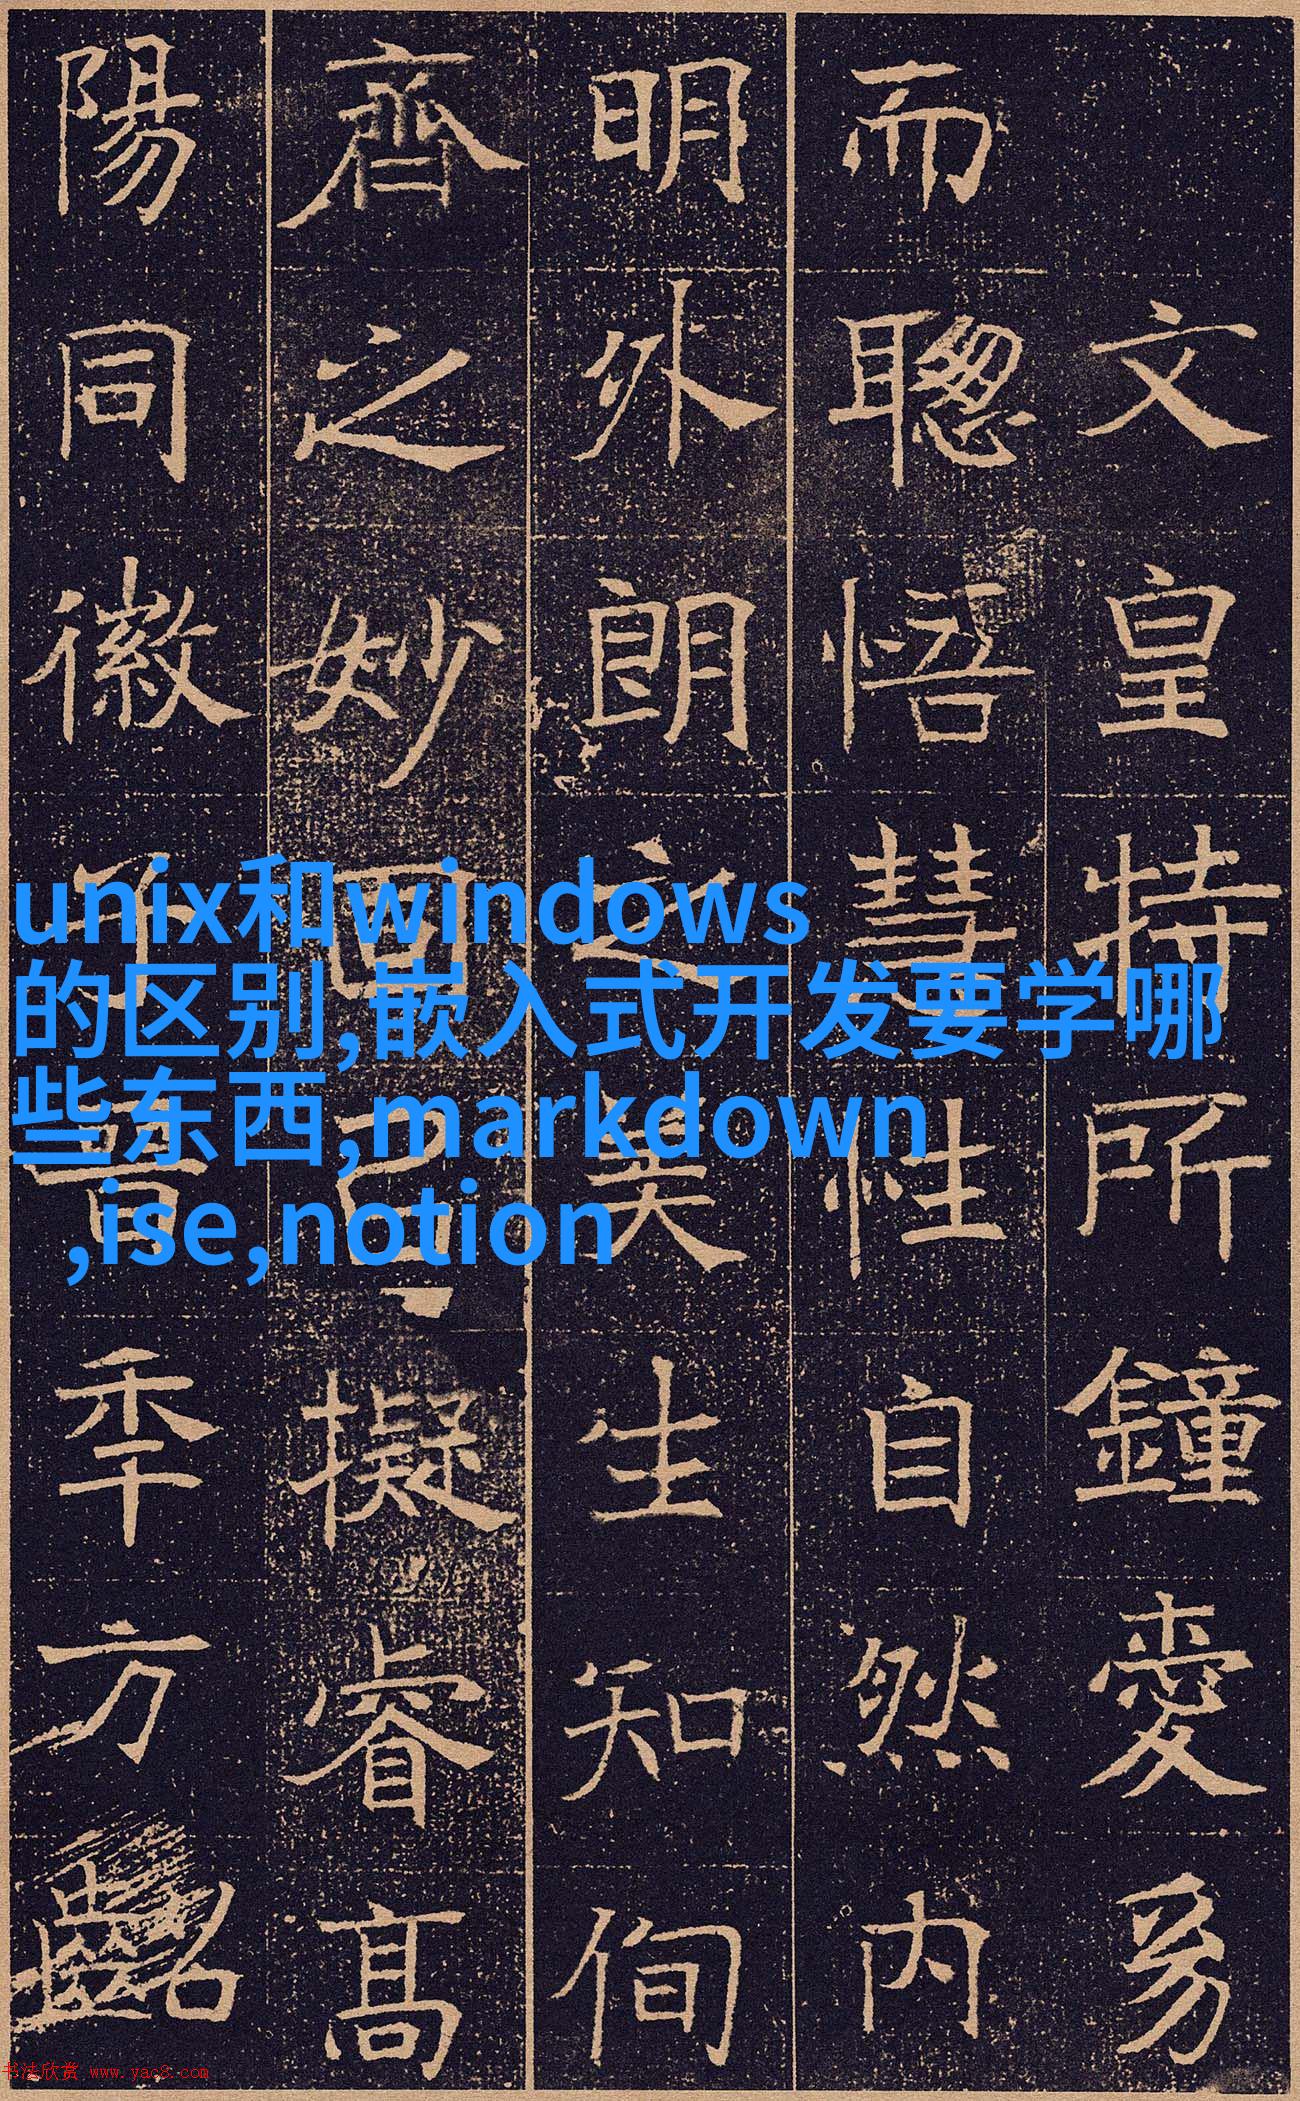 文皇特所鐘愛幼
而聰悟慧性自然内
明外朗之美生知徇
齊之妙固已擬睿高
陽同徽子晉季方齠
unix和windows
的区别,嵌入式开发要学哪
些东西,markdown
,ise,notion
书法欣赏 www.yac8.com